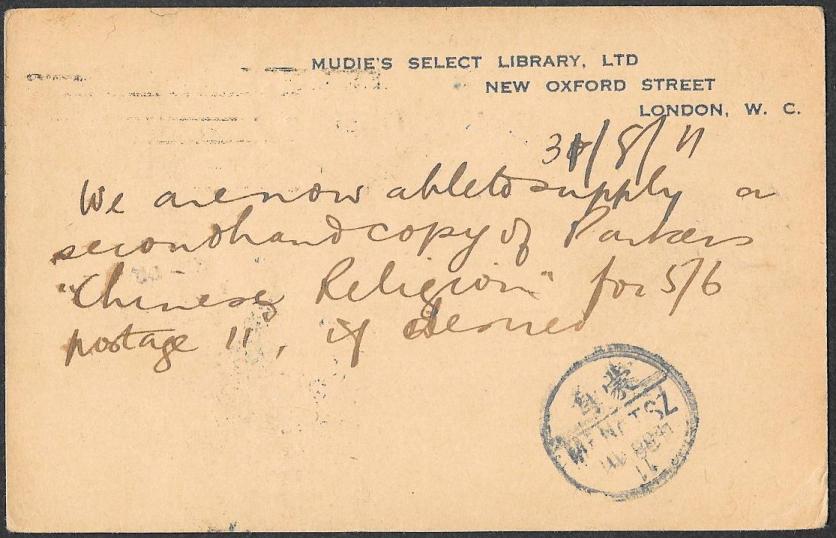 MUDIE'S SELECT LIBRARY, LTD
NEW OXFORD STREET
LONDON, W. C.
31/8/11
We are now able to supply a
secondhand copy of Parkers
"Chinese Religion" for 5/6
postage 11, if desired
蒙自
MENGTSZ
11